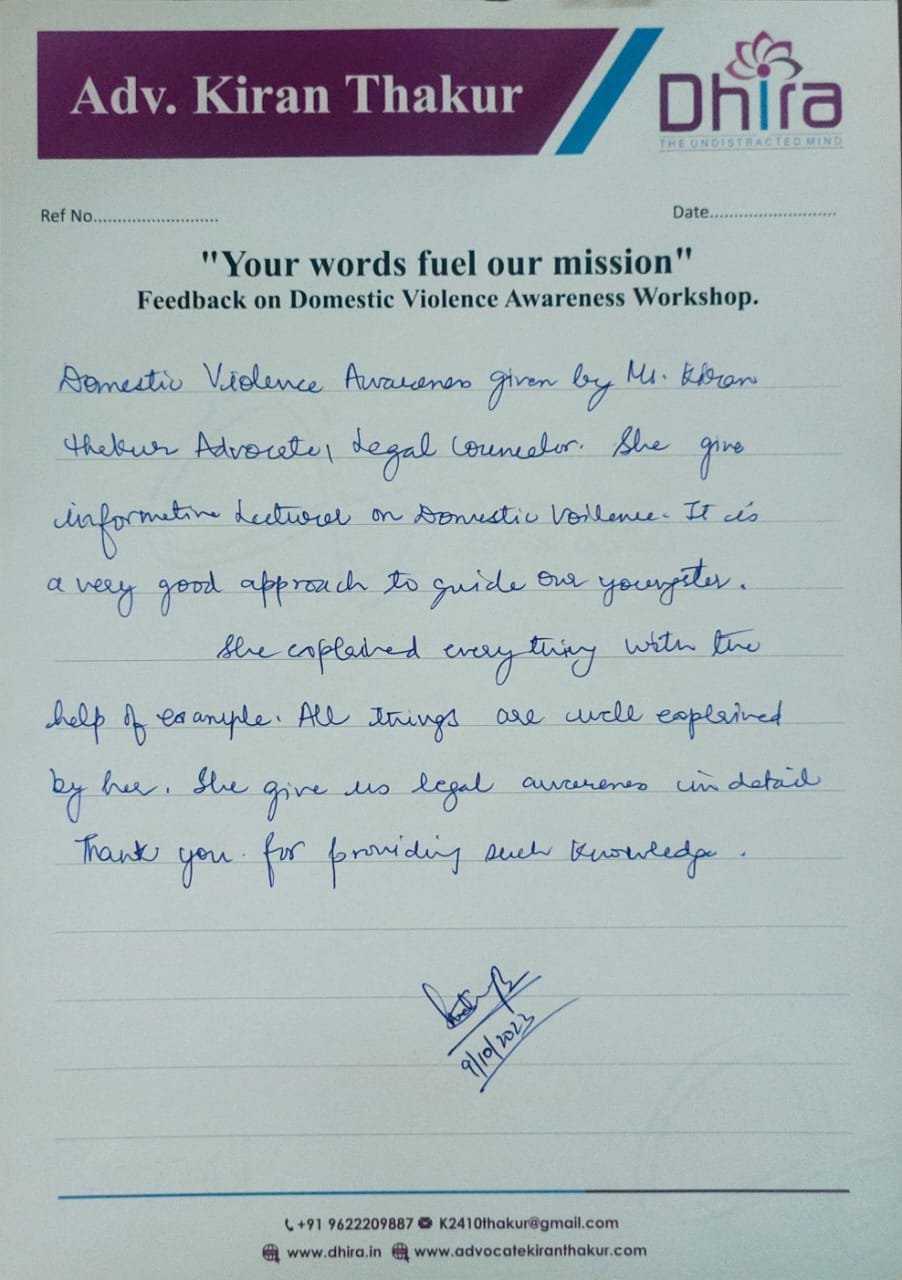 Adv. Kiran Thakur
Dhira
THE UNDISTRACTED MIND
Ref No..........................
Date..........................
"Your words fuel our mission"
Feedback on Domestic Violence Awareness Workshop.
Domestic Violence Awareness given by Ms. Kiran
Thakur Advocate, Legal Councelor. She give
informative Lecturer on Domestic Voilence. It is
a very good approach to guide our youngster.
She explained everything with the
help of example. All things are well explained
by her. She give us legal awareness in detail
Thank you for providing such knowledge.
9/10/2023
+91 9622209887 K2410thakur@gmail.com
www.dhira.in www.advocatekiranthakur.com